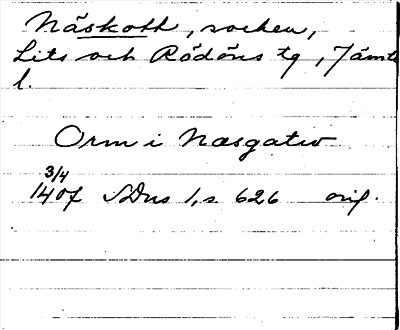 Näskott, socken,
Lits och Rödöns tg, Jämtl
l.
Orm i Næsgatw
3/4
1407 SDns 1, s. 626 orig.